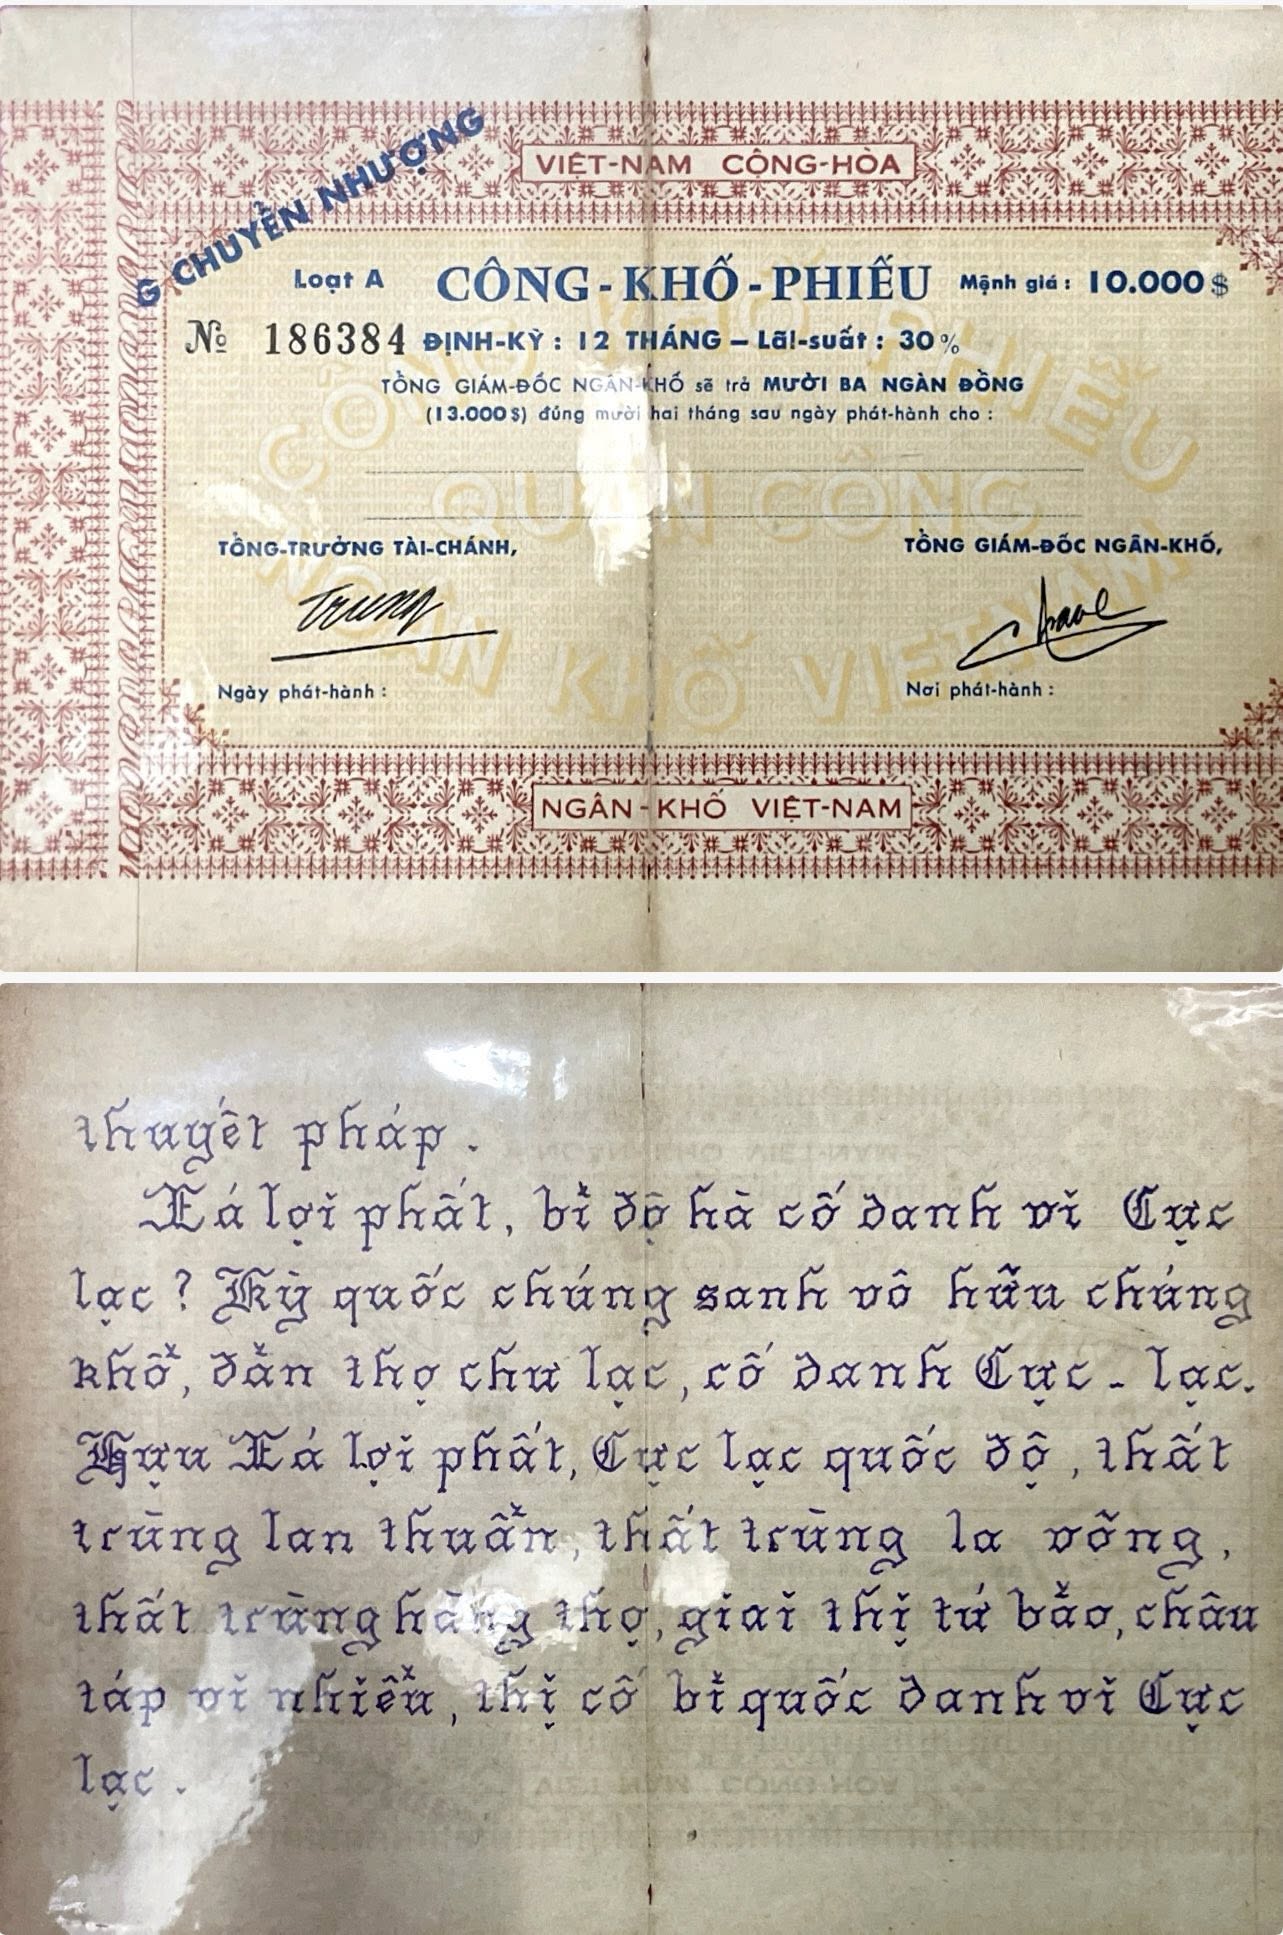 G CHUYỂN NHƯỢNG
VIỆT-NAM CỘNG-HÒA
Loạt A CÔNG-KHỐ-PHIẾU Mệnh giá: 10.000$
№ 186384 ĐỊNH-KỲ: 12 THÁNG – Lãi-suất: 30%
TỔNG GIÁM-ĐỐC NGÂN-KHỐ sẽ trả MƯỜI BA NGÀN ĐỒNG
(13.000$) đúng mười hai tháng sau ngày phát-hành cho:
CÔNG KHỐ PHIẾU
QUÂN CÔNG
NGÂN KHỐ VIETNAM
TỔNG-TRƯỞNG TÀI-CHÁNH, TỔNG GIÁM-ĐỐC NGÂN-KHỐ,
Trung
Ngày phát-hành: Nơi phát-hành:
NGÂN-KHỐ VIỆT-NAM
thuyết pháp.
Xá lợi phất, bỉ độ hà cố danh vi Cực
lạc? Kỳ quốc chúng sanh vô hữu chúng
khổ, đản thọ chư lạc, cố danh Cực-lạc.
Hựu Xá lợi phất, Cực lạc quốc độ, thất
trùng lan thuẫn, thất trùng la võng,
thất trùng hàng thọ, giai thị tứ bảo, châu
táp vi nhiễu, thị cố bỉ quốc danh vi Cực
lạc.